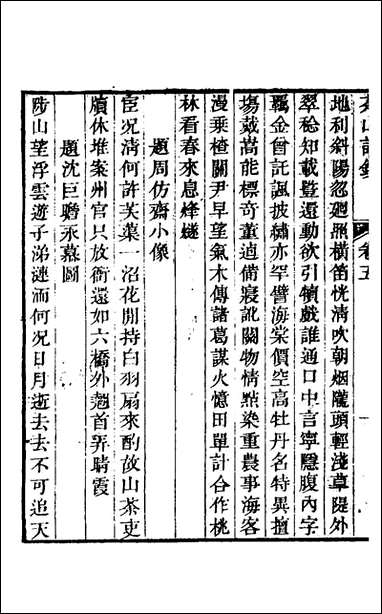 茶山詩鈔 卷五
地利斜陽忽廻照橫笛恍清吹朝烟隴頭輕淺草隄外
翠稔知載還動欲引犢戲誰通口中言寧隱腹內字
羈金曾託諷披繡亦罕譬海棠價空高牡丹名特異擅
塲戴嵩能標奇董逌備寢訛關物情點染重農事海客
漫乗槎關尹早望氣木傳諸葛謀火憶田單計合作桃
林看春來息烽燧
題周仿齋小像
宦况清何許芙蕖一沼花閒持白羽扇來酌故山茶吏
牘休堆案州官只放衙還如六橋外翹首弄晴霞
題沈巨贍永慕圖
陟山望浮雲遊子涕漣洏何況日月逝去去不可追天